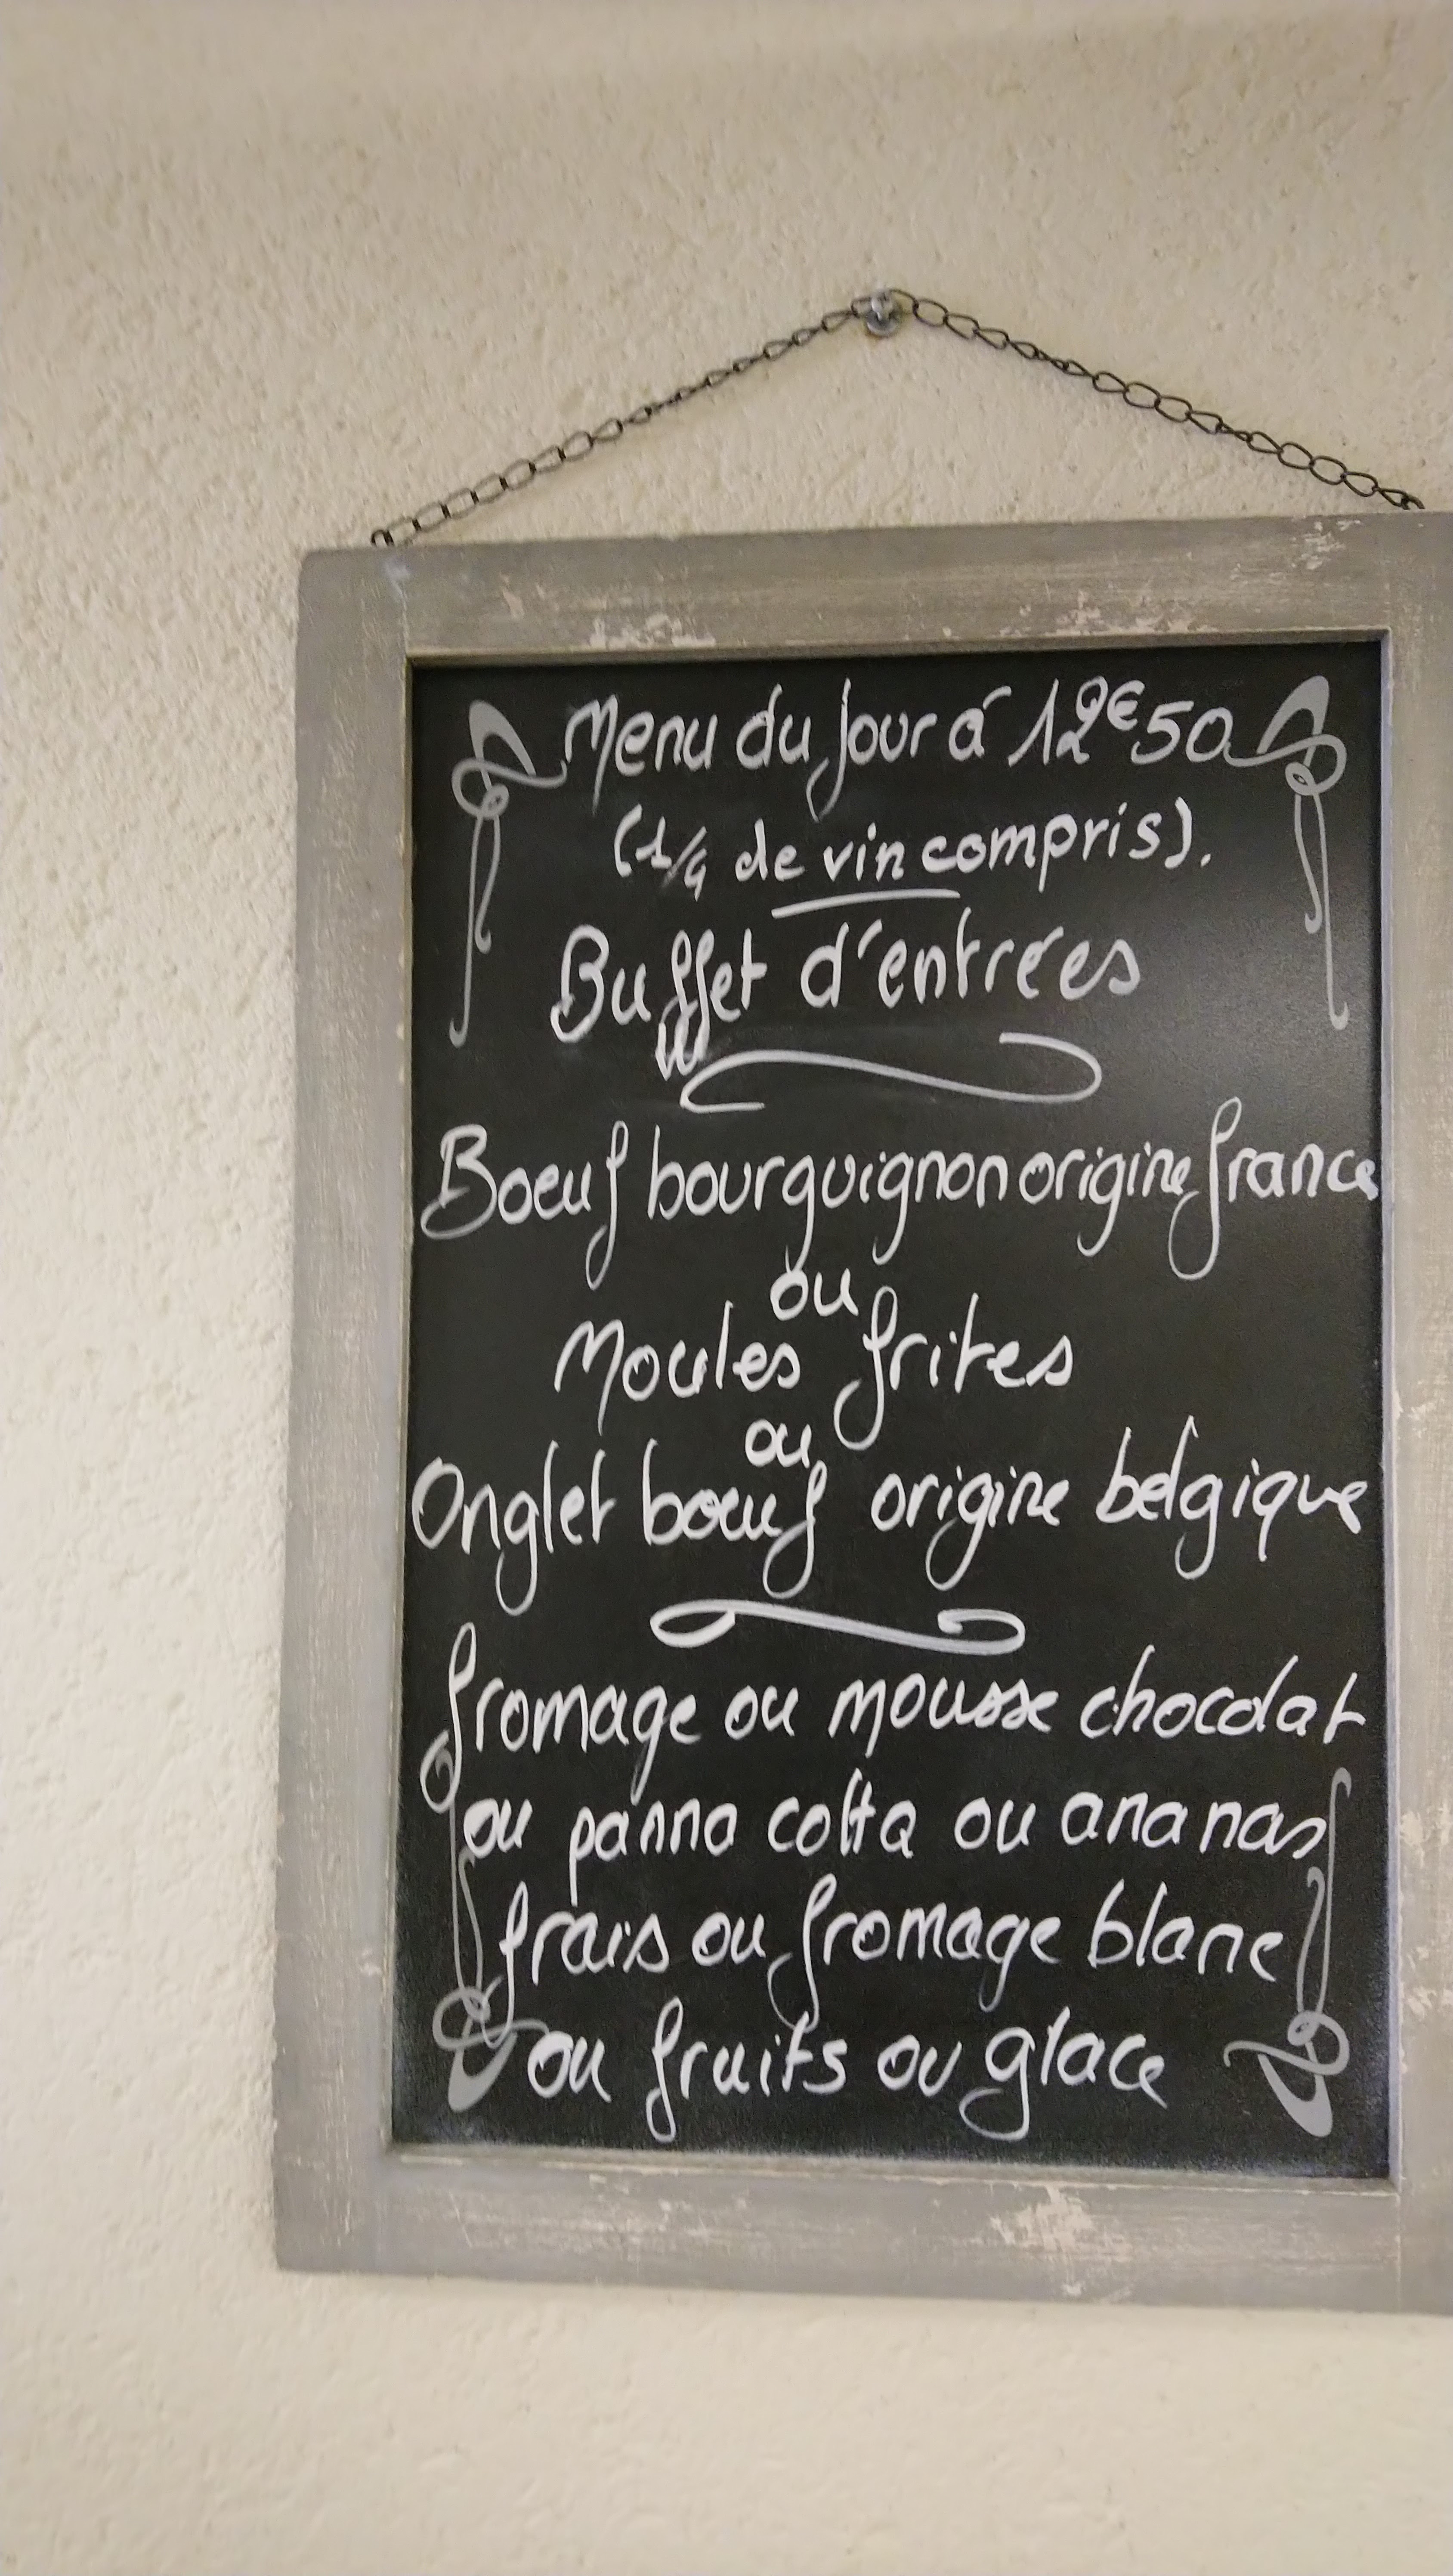 Menu du jour à 12€50
(1/4 de vin compris).
Buffet d'entrées
Boeuf bourguignon origine france
ou
Moules frites
ou
Onglet boeuf origine belgique
fromage ou mousse chocolat
ou panna cotta ou ananas
frais ou fromage blanc
ou fruits ou glace